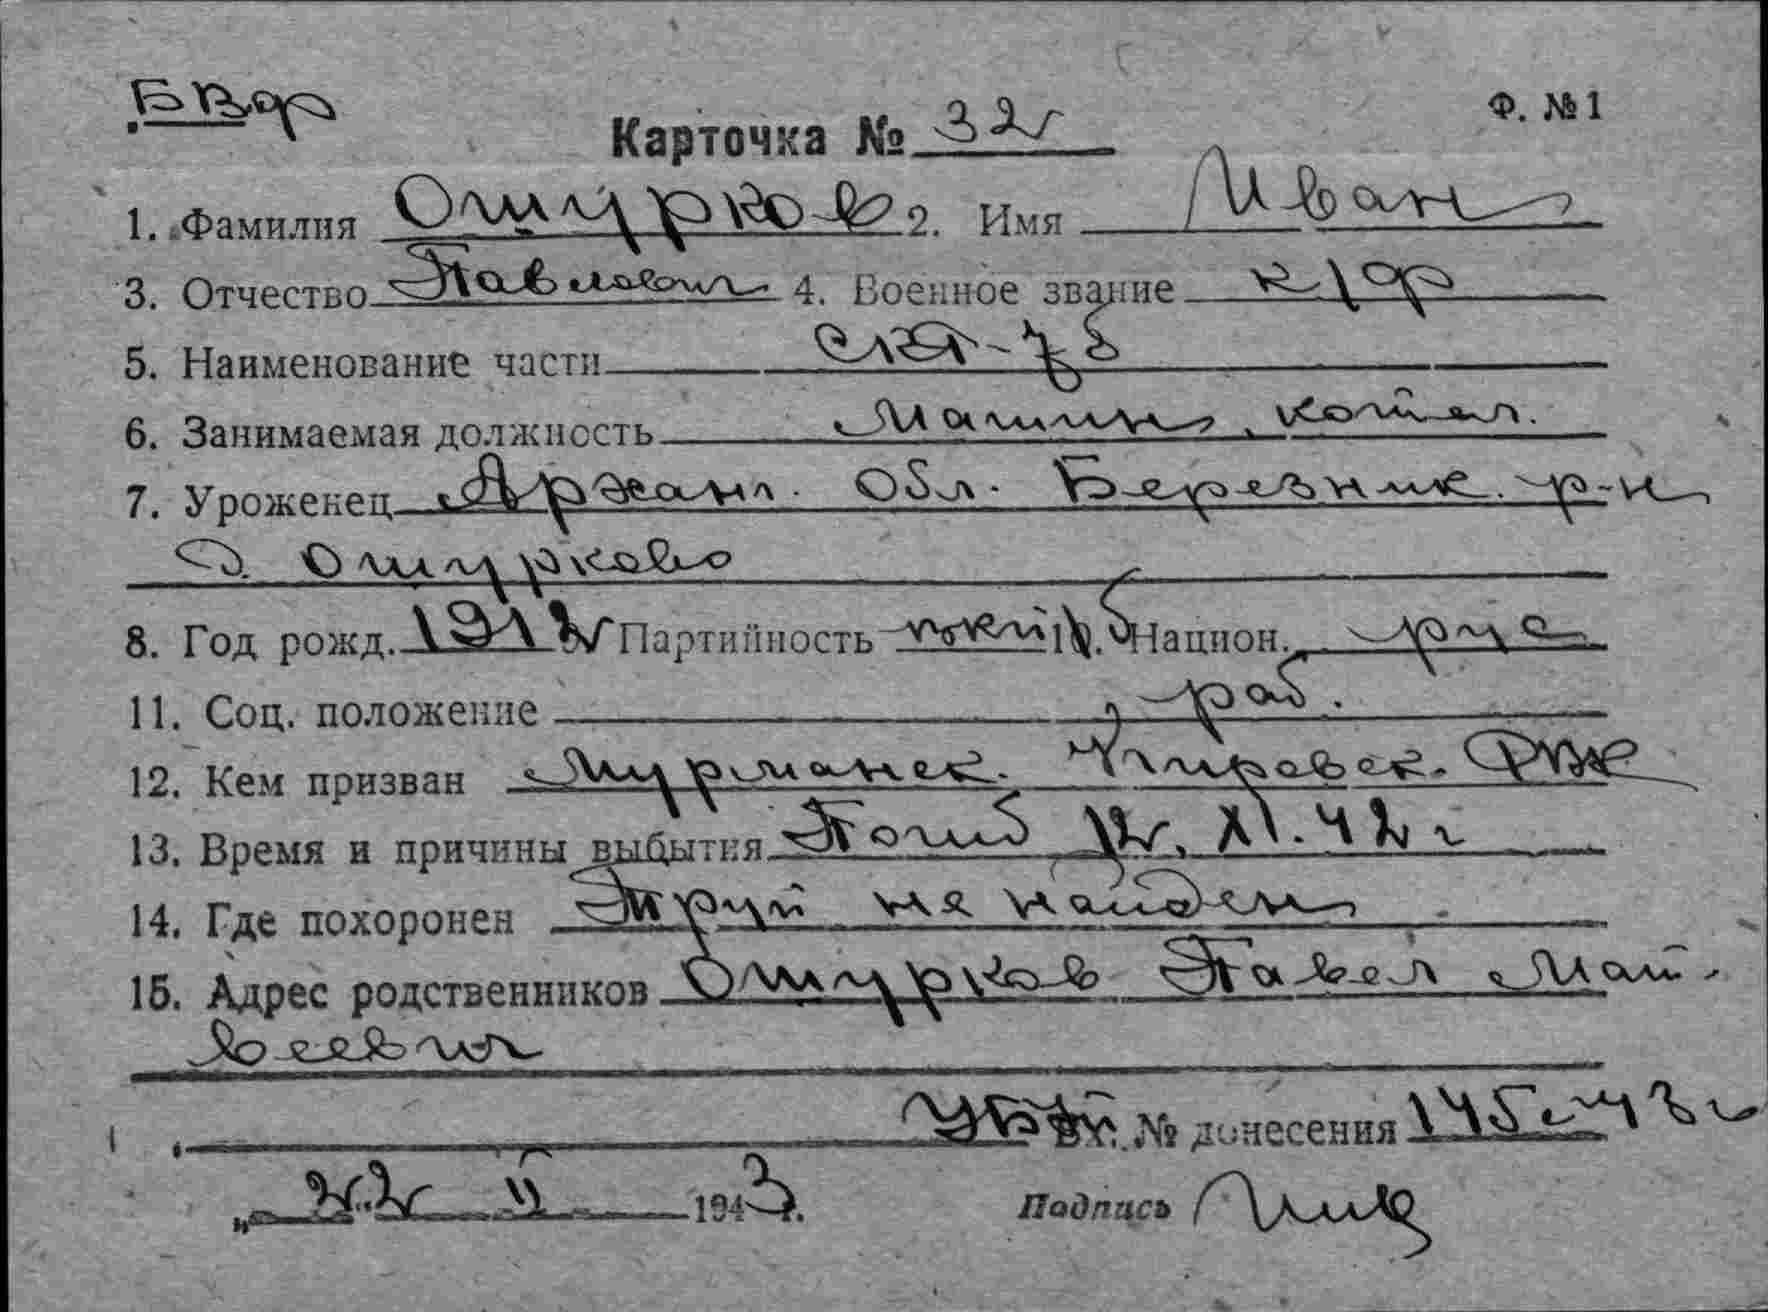 Ф. №1
Карточка № 32
1. Фамилия Ошурков 2. Имя Иван
3. Отчество Павлович 4. Военное звание к/ф
5. Наименование части СКР-78
6. Занимаемая должность Машин. котел.
7. Уроженец Арханг. Обл. Березник. р-н
д. Ошурково
8. Год рожд. 1912 Партийность 10. Национ. рус
11. Соц. положение раб.
12. Кем призван Мурманск. Кировск. РВК
13. Время и причины выбытия Погиб 12. XI. 42 г
14. Где похоронен Труп не найден
15. Адрес родственников Ошурков Павел Мат-
веевич
Вх. № донесения 145с-43г
„22 II 1943г.
Подпись